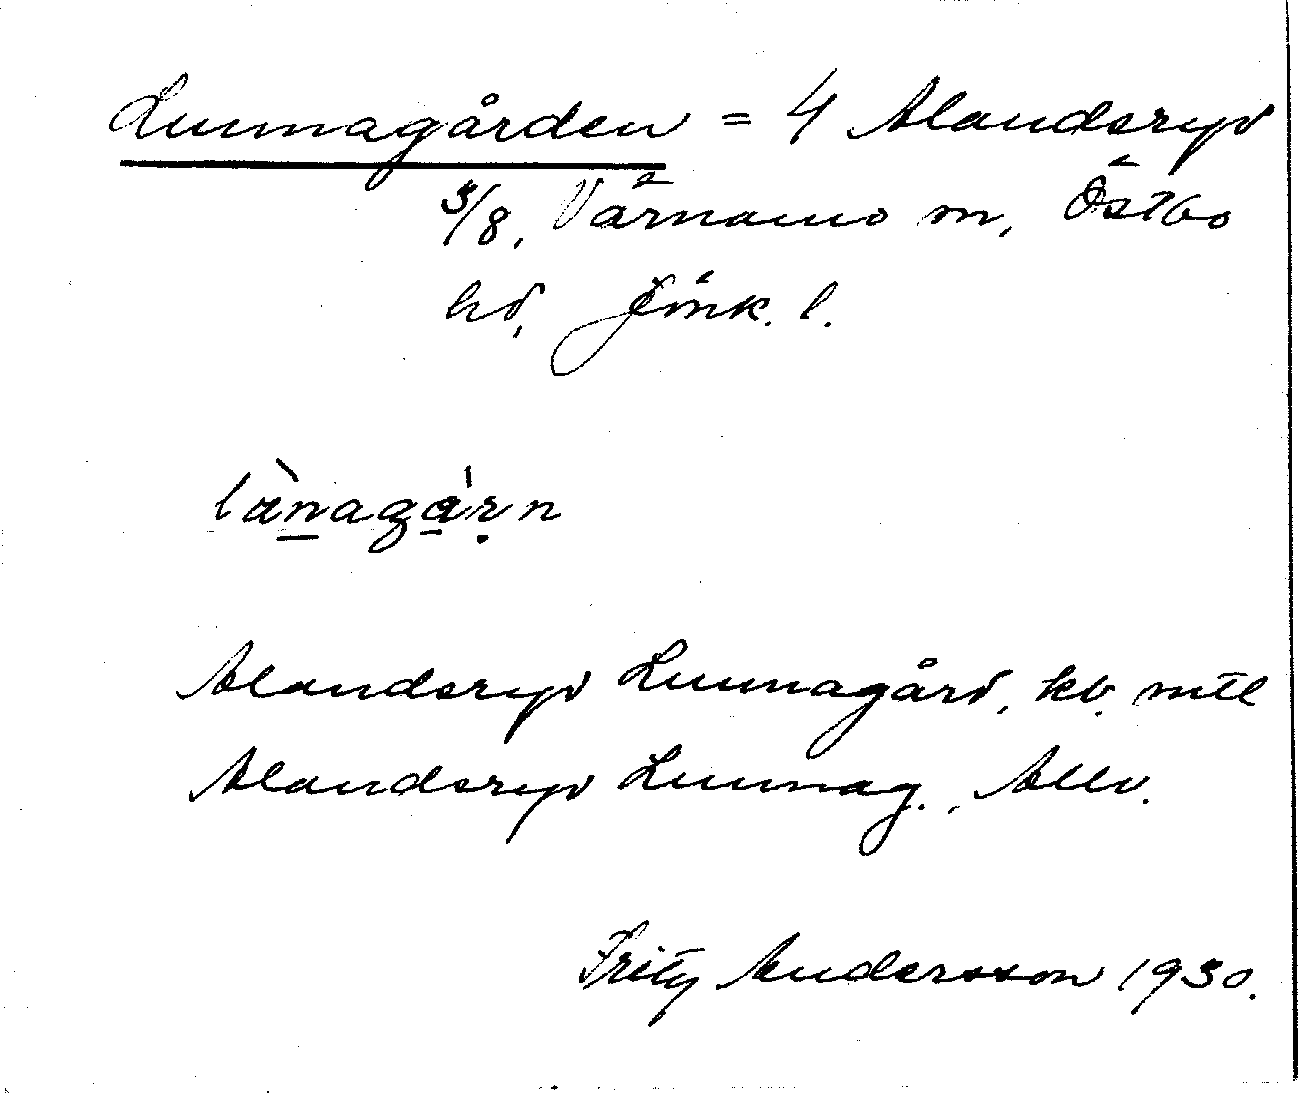 Lunnagården = 4 Alandsryd
3/8, Värnamo sn, Östbo
hd, Jönk. l.
lànagárn
Alandsryd Lunnagård, kb. mtl
Alandsryd Lunnag., Allv.
Fritz Andersson 1930.